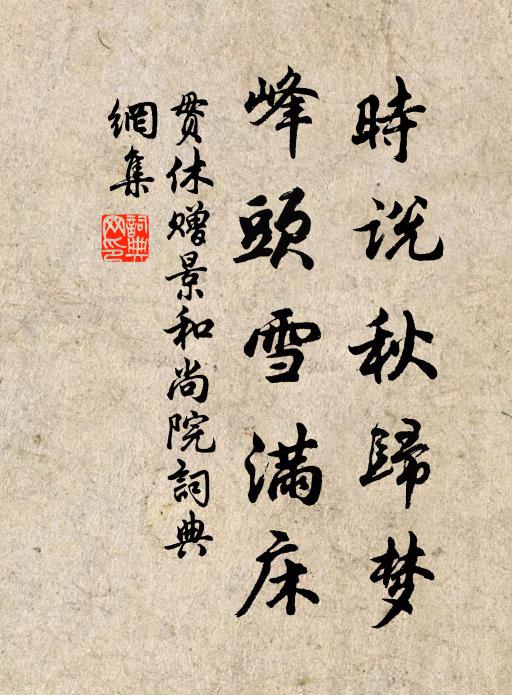 時説秋歸梦
峰頭雪满床
贯休赠景和尚院詞典
網集
詞典
网印